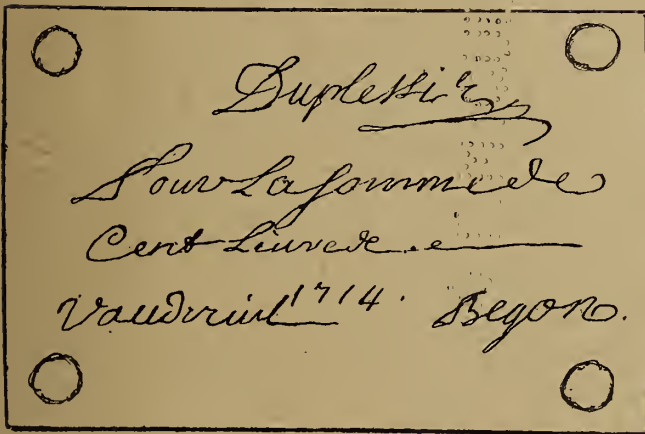 Duplessis
Pour La somme de
Cent Liures
Vaudreuil 1714. Begon.